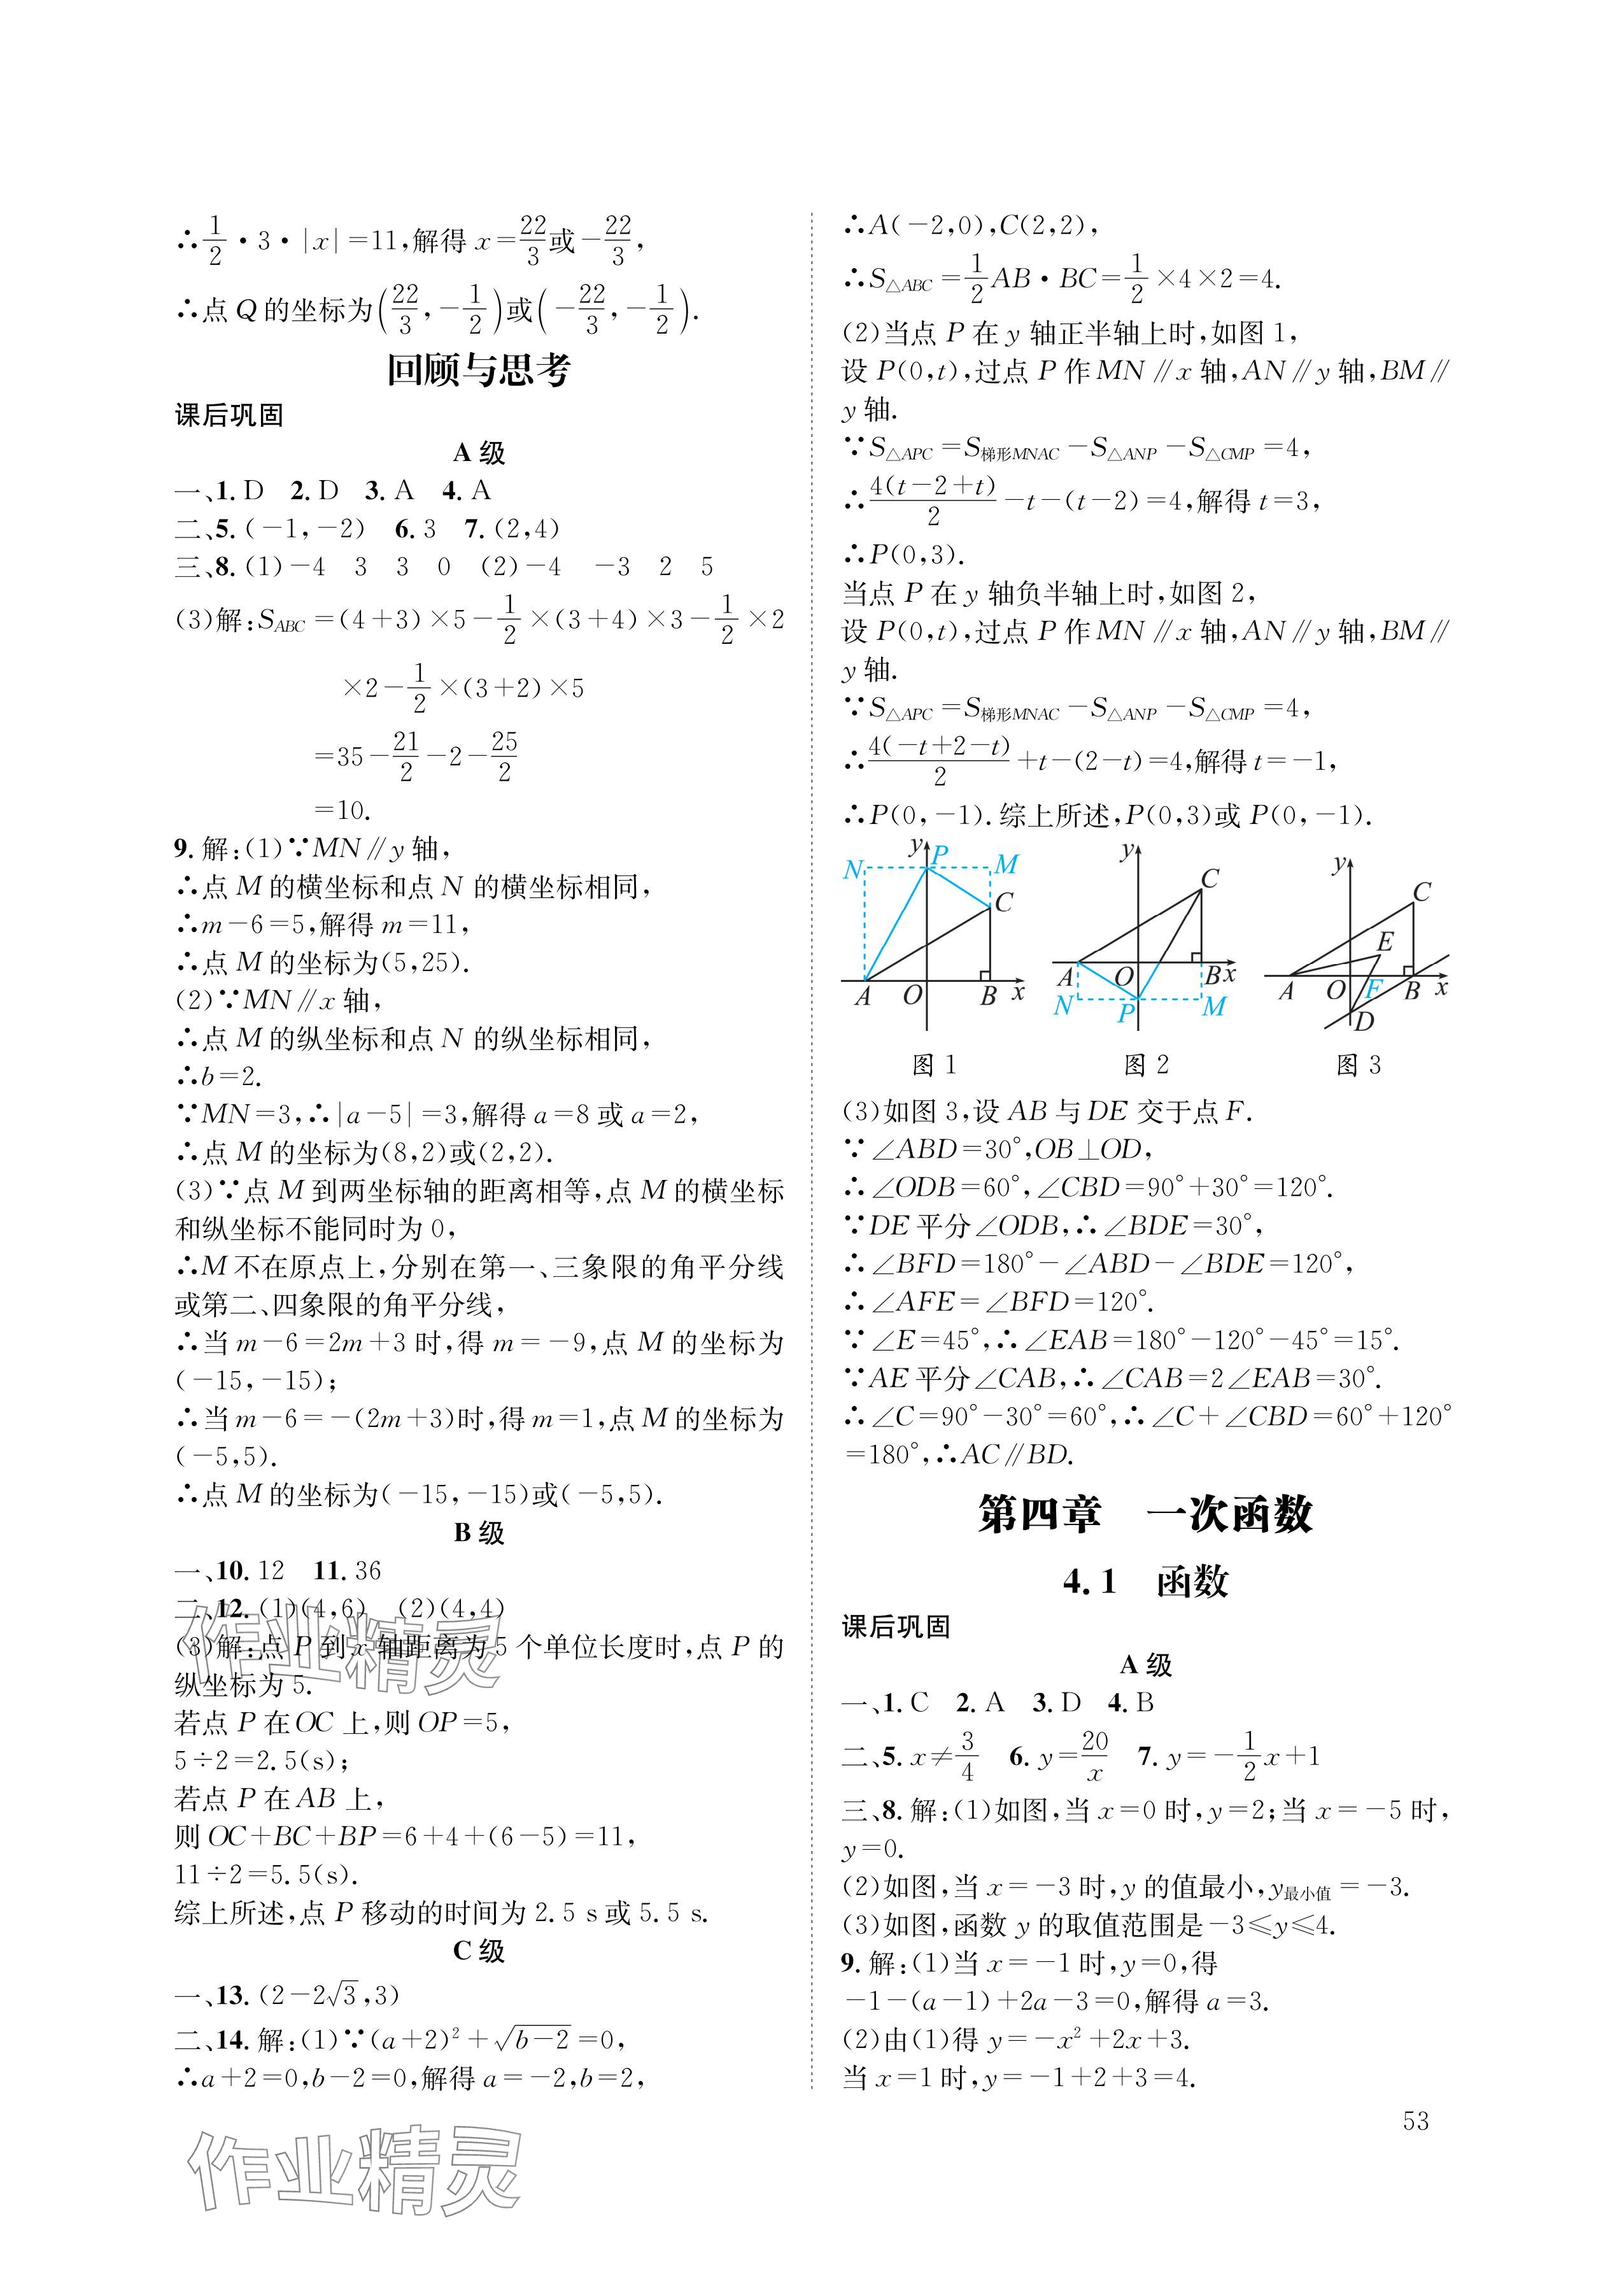 ∴1/2·3·|x|=11,解得 x=22/3或-22/3,
∴点 Q 的坐标为(22/3,-1/2)或(-22/3,-1/2).
回顾与思考
课后巩固
A 级
一、1. D 2. D 3. A 4. A
二、5. (-1,-2) 6. 3 7. (2,4)
三、8. (1)-4 3 3 0 (2)-4 -3 2 5
(3)解:S_ABC=(4+3)×5-1/2×(3+4)×3-1/2×2
×2-1/2×(3+2)×5
=35-21/2-2-25/2
=10.
9. 解:(1)∵MN∥y 轴,
∴点 M 的横坐标和点 N 的横坐标相同,
∴m-6=5,解得 m=11,
∴点 M 的坐标为(5,25).
(2)∵MN∥x 轴,
∴点 M 的纵坐标和点 N 的纵坐标相同,
∴b=2.
∵MN=3,∴|a-5|=3,解得 a=8 或 a=2,
∴点 M 的坐标为(8,2)或(2,2).
(3)∵点 M 到两坐标轴的距离相等,点 M 的横坐标
和纵坐标不能同时为 0,
∴M 不在原点上,分别在第一、三象限的角平分线
或第二、四象限的角平分线,
∴当 m-6=2m+3 时,得 m=-9,点 M 的坐标为
(-15,-15);
∴当 m-6=-(2m+3)时,得 m=1,点 M 的坐标为
(-5,5).
∴点 M 的坐标为(-15,-15)或(-5,5).
B 级
一、10. 12 11. 36
二、12. (1)(4,6) (2)(4,4)
(3)解:点 P 到 x 轴距离为 5 个单位长度时,点 P 的
纵坐标为 5.
若点 P 在 OC 上,则 OP=5,
5÷2=2.5(s);
若点 P 在 AB 上,
则 OC+BC+BP=6+4+(6-5)=11,
11÷2=5.5(s).
综上所述,点 P 移动的时间为 2.5 s 或 5.5 s.
C 级
一、13. (2-2√3,3)
二、14. 解:(1)∵(a+2)²+√(b-2)=0,
∴a+2=0,b-2=0,解得 a=-2,b=2,
∴A(-2,0),C(2,2),
∴S△ABC=1/2AB·BC=1/2×4×2=4.
(2)当点 P 在 y 轴正半轴上时,如图 1,
设 P(0,t),过点 P 作 MN∥x 轴,AN∥y 轴,BM∥
y 轴.
∵S△APC=S梯形MNAC-S△ANP-S△CMP=4,
∴4(t-2+t)/2-t-(t-2)=4,解得 t=3,
∴P(0,3).
当点 P 在 y 轴负半轴上时,如图 2,
设 P(0,t),过点 P 作 MN∥x 轴,AN∥y 轴,BM∥
y 轴.
∵S△APC=S梯形MNAC-S△ANP-S△CMP=4,
∴4(-t+2-t)/2+t-(2-t)=4,解得 t=-1,
∴P(0,-1). 综上所述,P(0,3)或 P(0,-1).
N y P M C A O B x
y C A O B x N P M
y C E A O F B x D
图 1 图 2 图 3
(3)如图 3,设 AB 与 DE 交于点 F.
∵∠ABD=30°,OB⊥OD,
∴∠ODB=60°,∠CBD=90°+30°=120°.
∵DE 平分∠ODB,∴∠BDE=30°,
∴∠BFD=180°-∠ABD-∠BDE=120°,
∴∠AFE=∠BFD=120°.
∵∠E=45°,∴∠EAB=180°-120°-45°=15°.
∵AE 平分∠CAB,∴∠CAB=2∠EAB=30°.
∴∠C=90°-30°=60°,∴∠C+∠CBD=60°+120°
=180°,∴AC∥BD.
第四章 一次函数
4.1 函数
课后巩固
A 级
一、1. C 2. A 3. D 4. B
二、5. x≠3/4 6. y=20/x 7. y=-1/2x+1
三、8. 解:(1)如图,当 x=0 时,y=2;当 x=-5 时,
y=0.
(2)如图,当 x=-3 时,y 的值最小,y最小值=-3.
(3)如图,函数 y 的取值范围是-3≤y≤4.
9. 解:(1)当 x=-1 时,y=0,得
-1-(a-1)+2a-3=0,解得 a=3.
(2)由(1)得 y=-x²+2x+3.
当 x=1 时,y=-1+2+3=4.
53
作业精灵
作业精灵